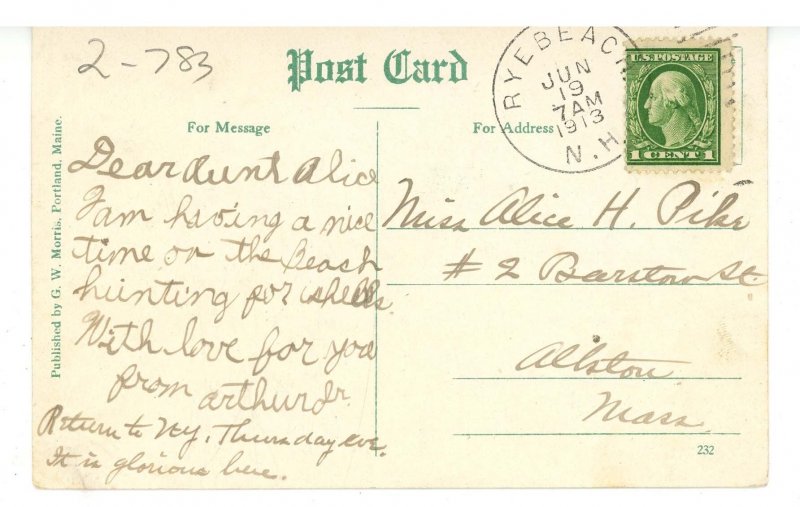 2-783
Post Card
For Message
For Address
Published by G. W. Morris, Portland, Maine.
RYE BEACH
JUN
19
7 AM
1913
N.H.
U.S. POSTAGE
1 CENT 1
Dear Aunt Alice
I am having a nice
time on the Beach
hunting for shells.
With love for you
from arthur Jr
Return to N.Y. Thursday eve.
It is glorious here.
Miss Alice H. Pike
# 2 Barstow St.
Allston
Mass
232